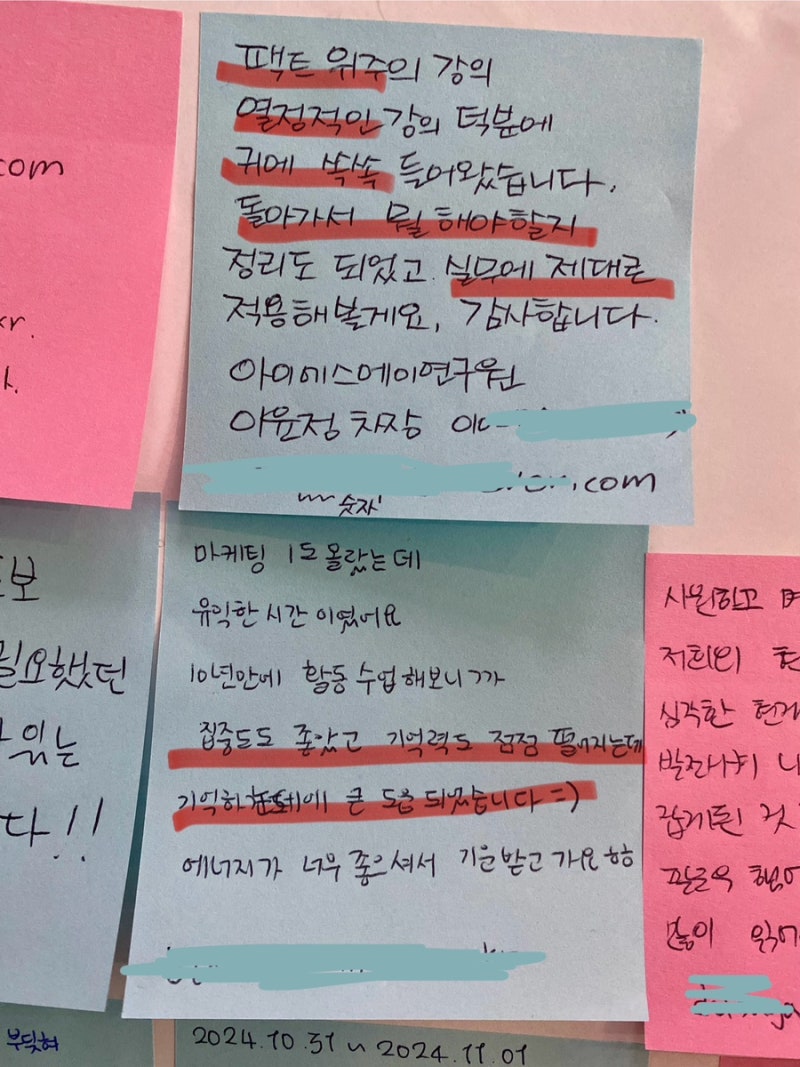 com
kr.
팩트 위주의 강의
열정적인 강의 덕분에
귀에 쏙쏙 들어왔습니다.
돌아가서 뭘 해야할지
정리도 되었고 실무에 제대로
적용해볼게요, 감사합니다.
아이에스에이연구원
이윤정 차장
.com
숫자
마케팅 1도 몰랐는데
유익한 시간이였어요
10년만에 활동 수업 해보니까
집중도도 좋았고 기억력도 점점 떨어지는데
기억하는데에 큰 도움 되었습니다 =)
에너지가 너무 좋으셔서 기운 받고 가요 ㅎㅎ
보
필요했던
있는
다!!
시원하고
저희의
심각한
많이
부딪혀
2024.10.31 ~ 2024.11.01